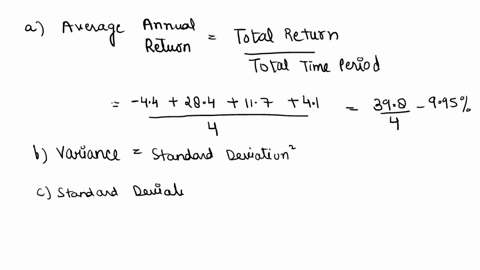 a) Average Annual Return = Total Return / Total Time Period
= -4.4 + 28.4 + 11.7 + 4.1 / 4 = 39.8 / 4 - 9.95%
b) Variance = Standard Deviation²
c) Standard Deviat